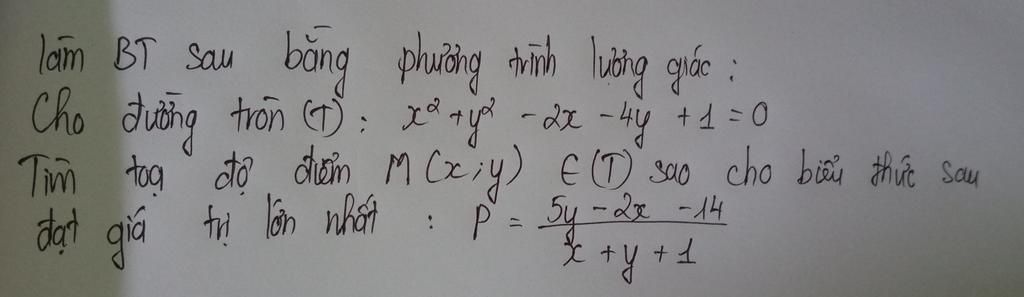 làm BT sau bằng phương trình lượng giác :
Cho đường tròn (T) : x² + y² - 2x - 4y + 1 = 0
Tìm toạ độ điểm M (x ; y) ∈ (T) sao cho biểu thức sau
đạt giá trị lớn nhất : P = \frac{5y - 2x - 14}{x + y + 1}